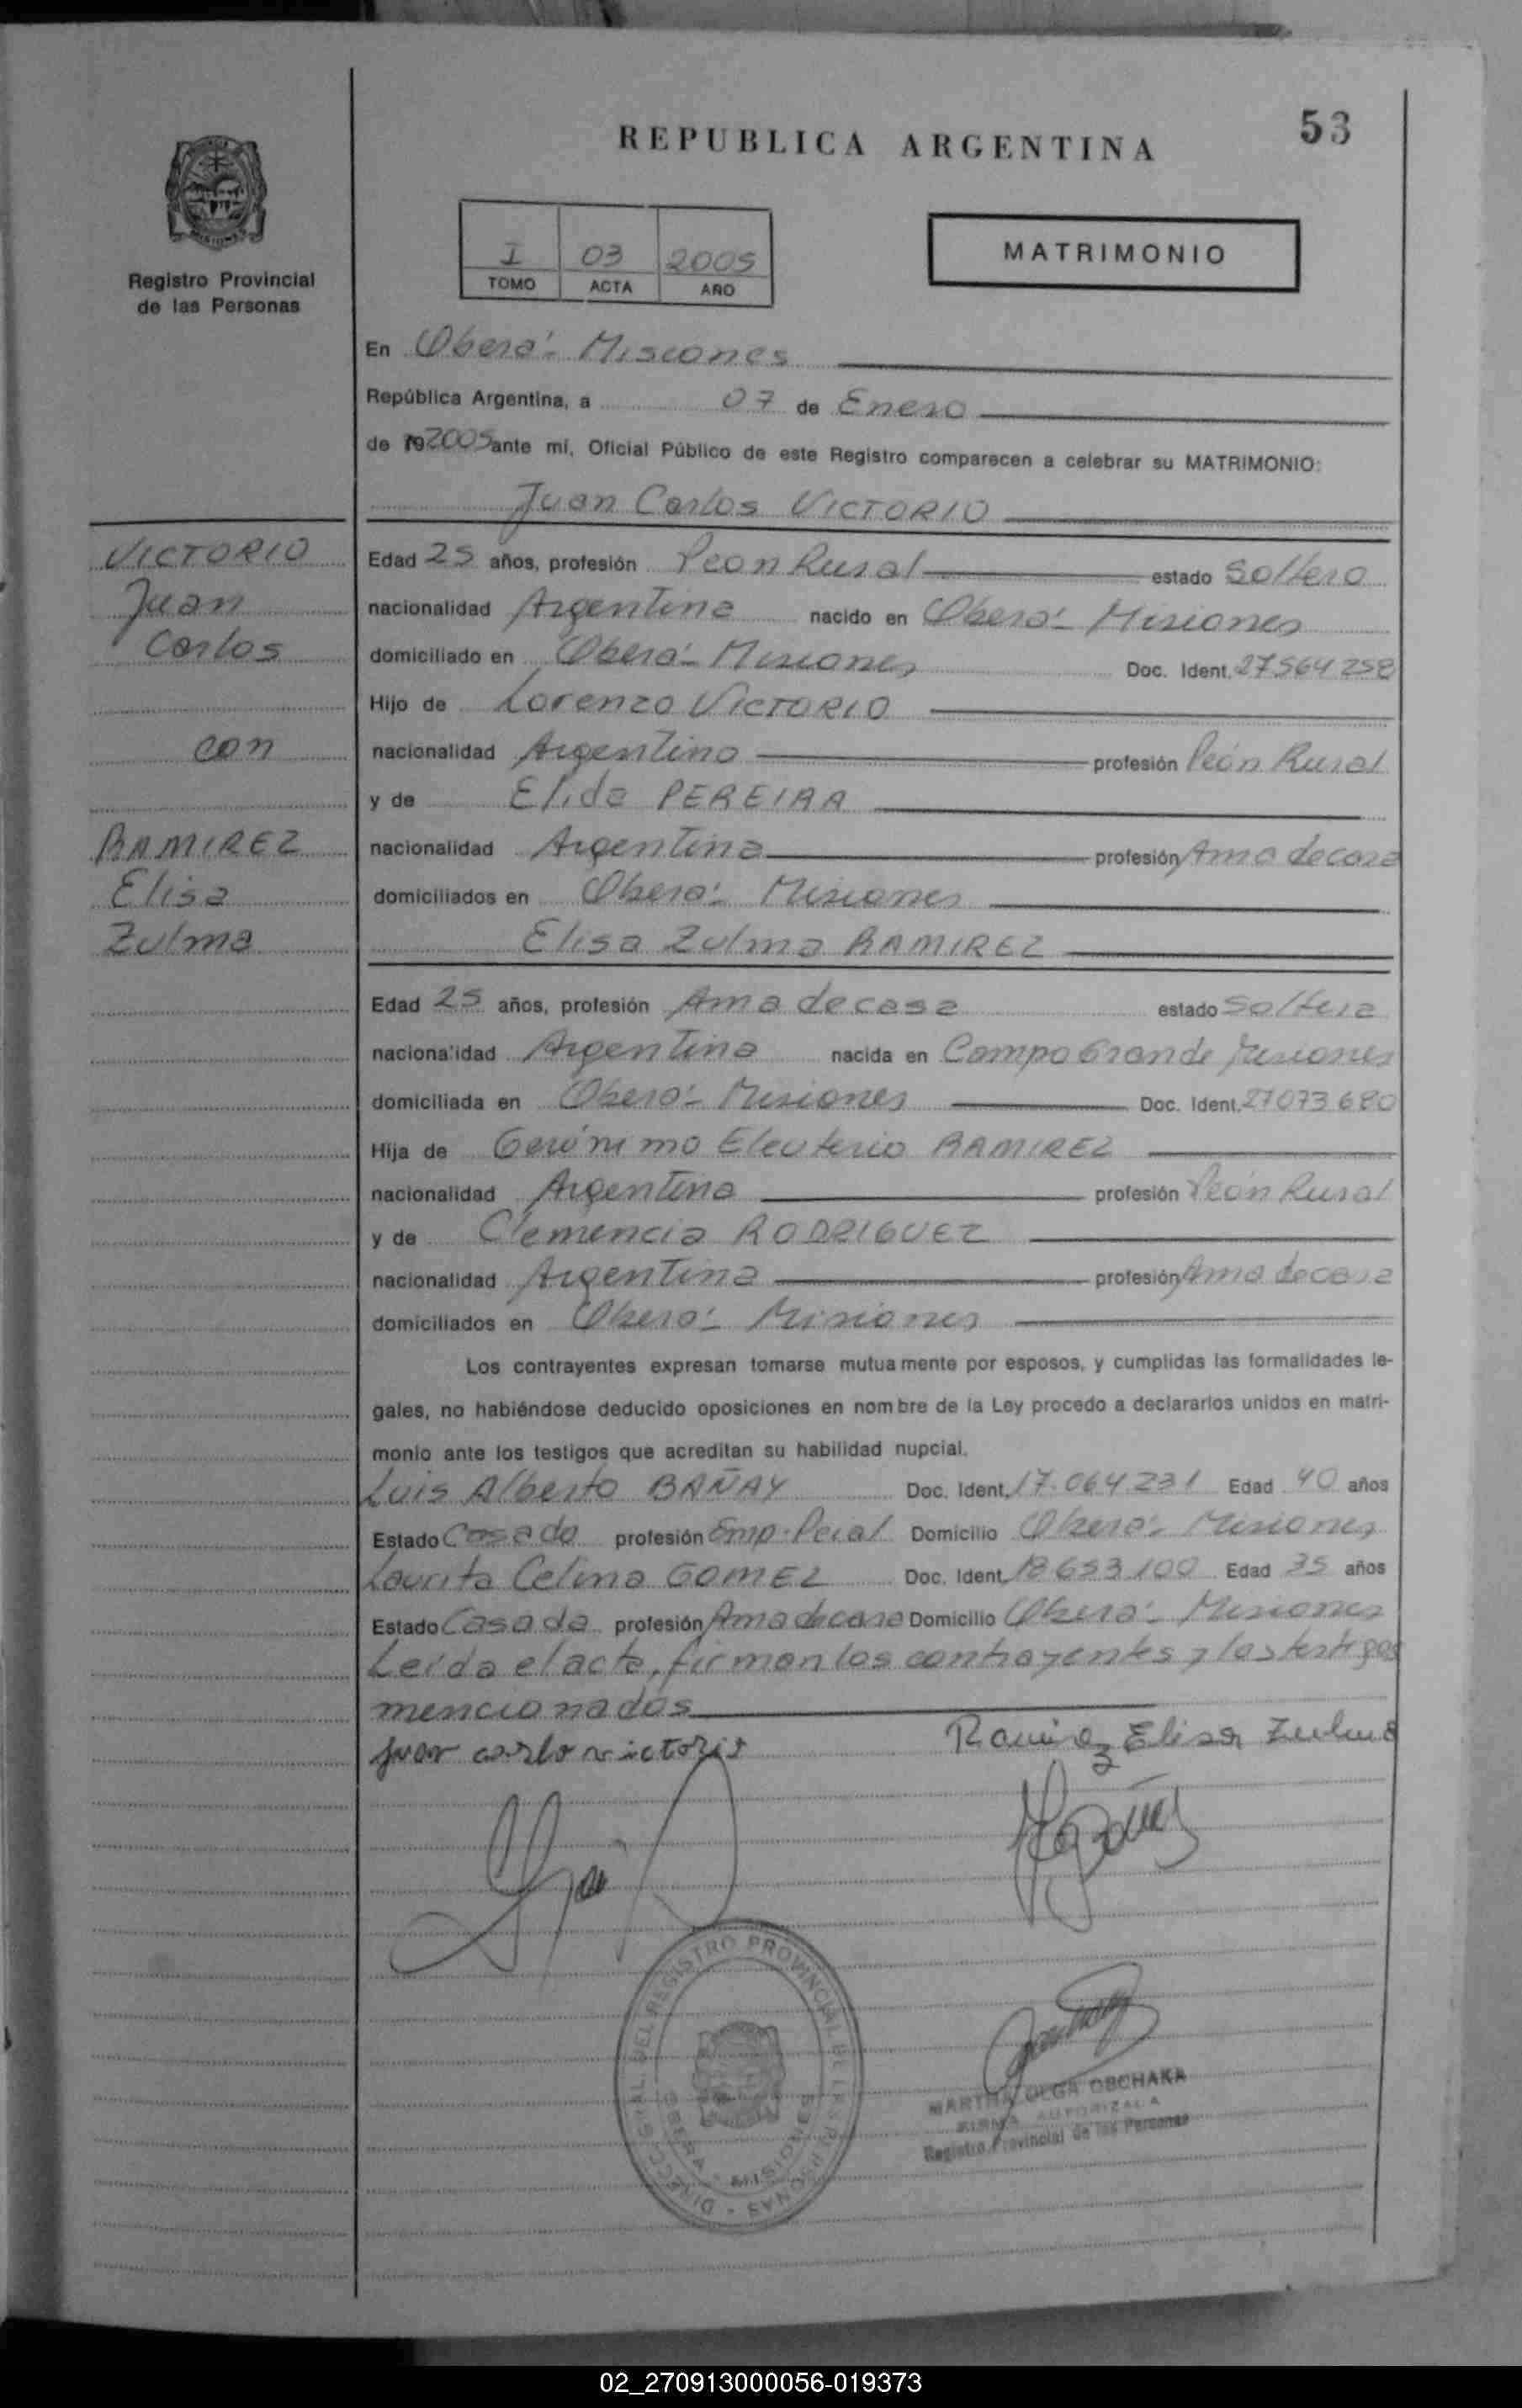 REPUBLICA ARGENTINA
53
Registro Provincial
de las Personas
I 03 2005
TOMO ACTA AÑO
MATRIMONIO
En Oberá - Misiones
República Argentina, a 07 de Enero
de 19 2005 ante mí, Oficial Público de este Registro comparecen a celebrar su MATRIMONIO:
Juan Carlos VICTORIO
VICTORIO
Juan
Carlos
con
RAMIREZ
Elisa
Zulma
Edad 25 años, profesión Peon Rural estado Soltero
nacionalidad Argentina nacido en Oberá - Misiones
domiciliado en Oberá - Misiones Doc. Ident. 27564258
Hijo de Lorenzo VICTORIO
nacionalidad Argentino profesión Peón Rural
y de Elida PEREIRA
nacionalidad Argentina profesión Ama de casa
domiciliados en Oberá - Misiones
Elisa Zulma RAMIREZ
Edad 25 años, profesión Ama de casa estado Soltera
nacionalidad Argentina nacida en Campo Grande Misiones
domiciliada en Oberá - Misiones Doc. Ident. 27073680
Hija de Gerónimo Eleuterio RAMIREZ
nacionalidad Argentina profesión Peón Rural
y de Clemencia RODRIGUEZ
nacionalidad Argentina profesión Ama de casa
domiciliados en Oberá - Misiones
Los contrayentes expresan tomarse mutuamente por esposos, y cumplidas las formalidades le-
gales, no habiéndose deducido oposiciones en nombre de la Ley procedo a declararlos unidos en matri-
monio ante los testigos que acreditan su habilidad nupcial.
Luis Alberto BAÑAY Doc. Ident. 17.064231 Edad 40 años
Estado Casado profesión Emp. Pcial Domicilio Oberá - Misiones
Laurita Celina GOMEZ Doc. Ident. 18653100 Edad 35 años
Estado Casada profesión Ama de casa Domicilio Oberá - Misiones
Leída el acta, firman los contrayentes y los testigos
mencionados
juan carlo victorio
Ramirez Elisa Zulma
DIRECC. GRAL. DEL REGISTRO PROVINCIAL DE LAS PERSONAS
OBERA - MISIONES
MARTHA OLGA OBCHAKA
FIRMA AUTORIZADA
Registro Provincial de las Personas
02_270913000056-019373